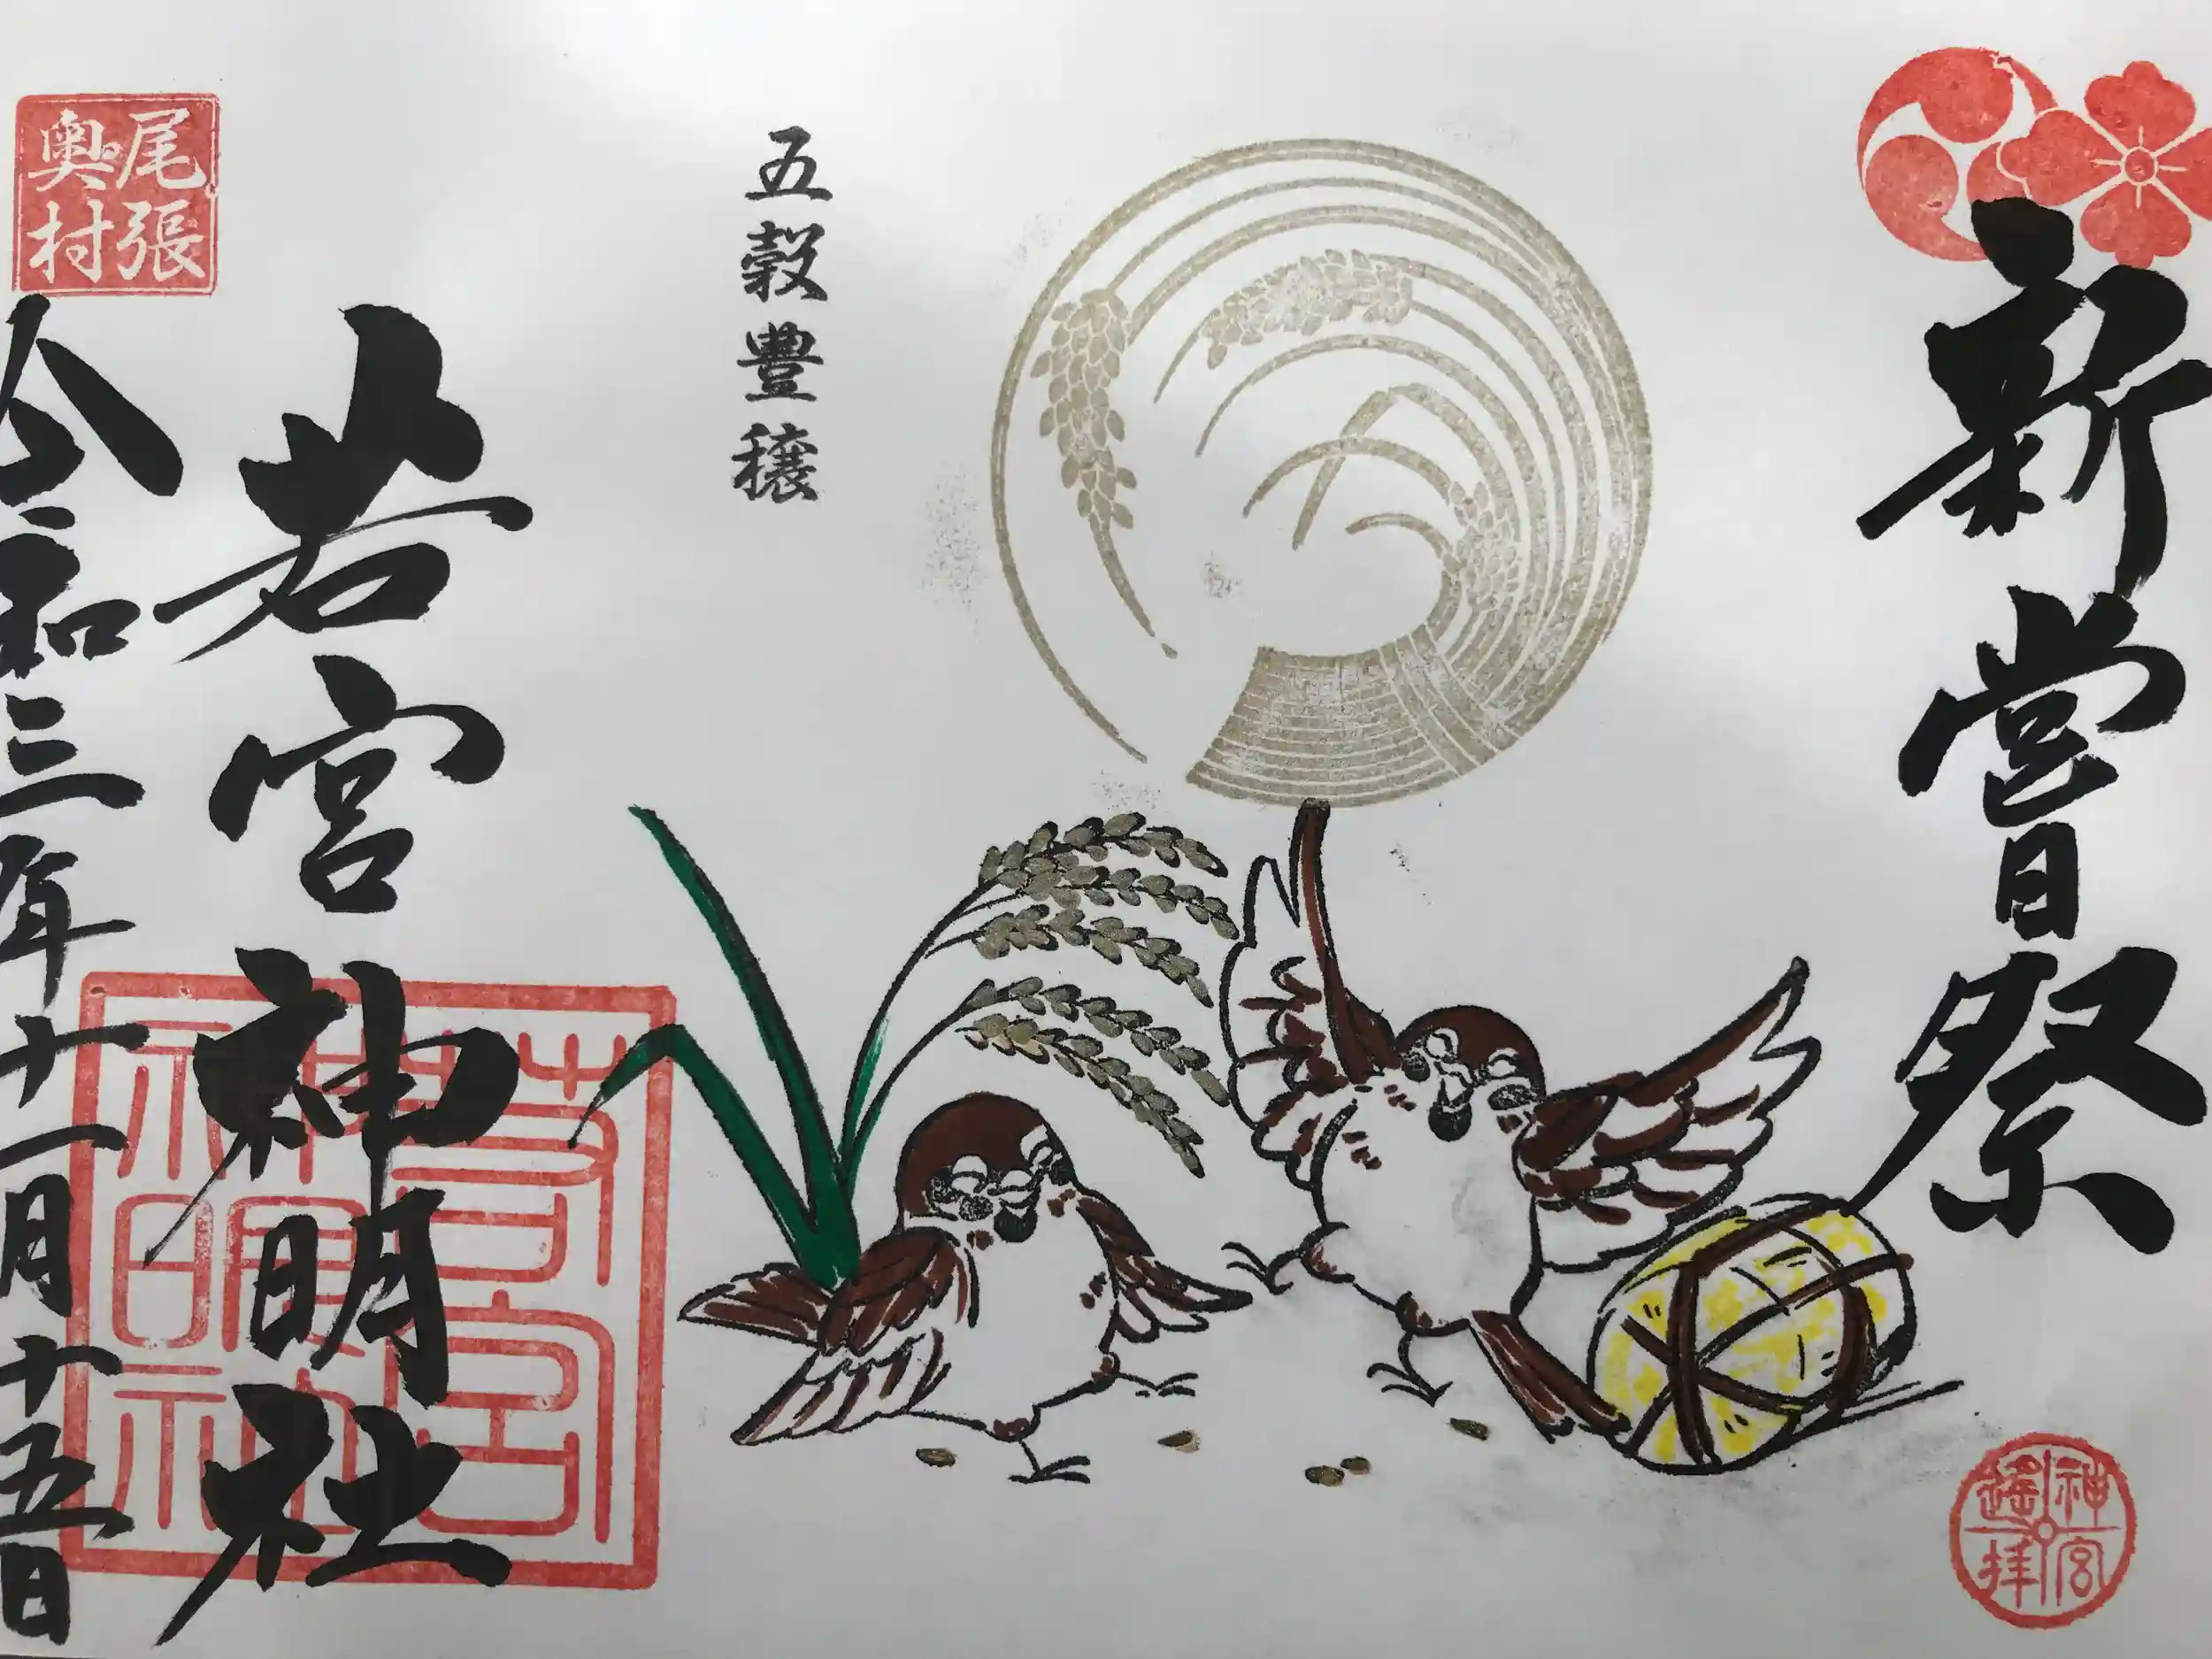 新嘗祭
神宮
遙拝
五穀豊穣
若宮神明社
尾張
奥村
令和三年十一月十五日
若宮
神明社